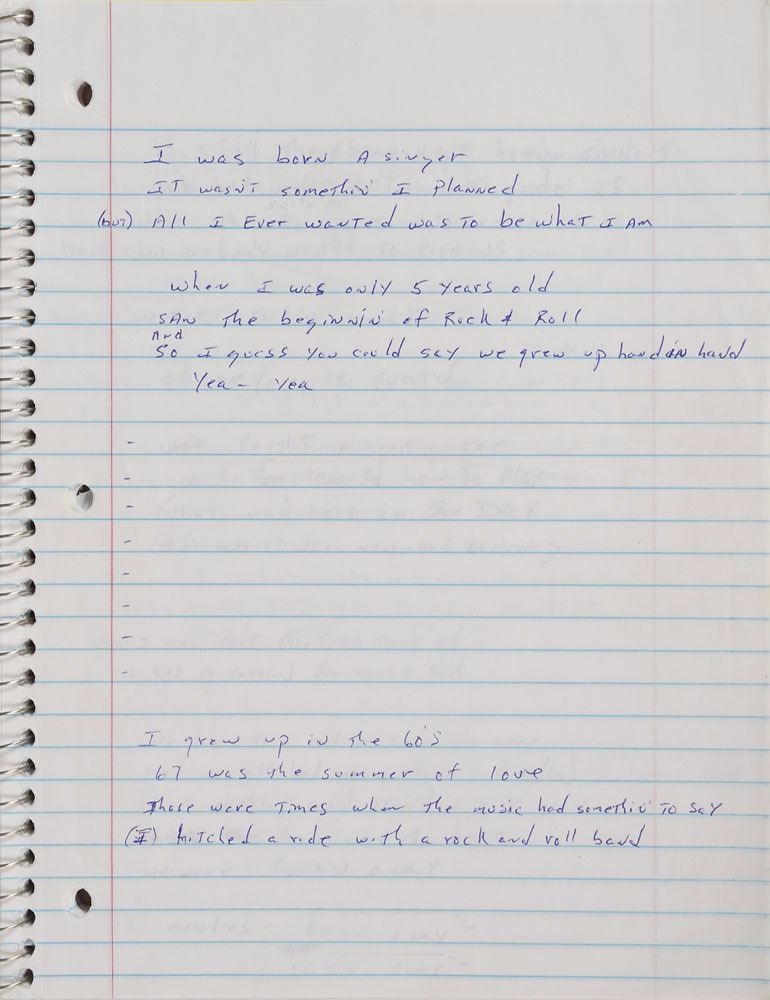 I was born A singer
IT wasn'T somethin' I Planned
(but) All I Ever wanted was To be what I Am
when I was only 5 years old
SAw The beginnin' of Rock & Roll
And
So I guess You could say we grew up hand in hand
Yea - Yea
-
-
-
-
-
-
-
-
I grew up in the 60's
67 was the summer of love
Those were Times when The music had somethin' To SAY
(I) hiTched a ride with a rock and roll band